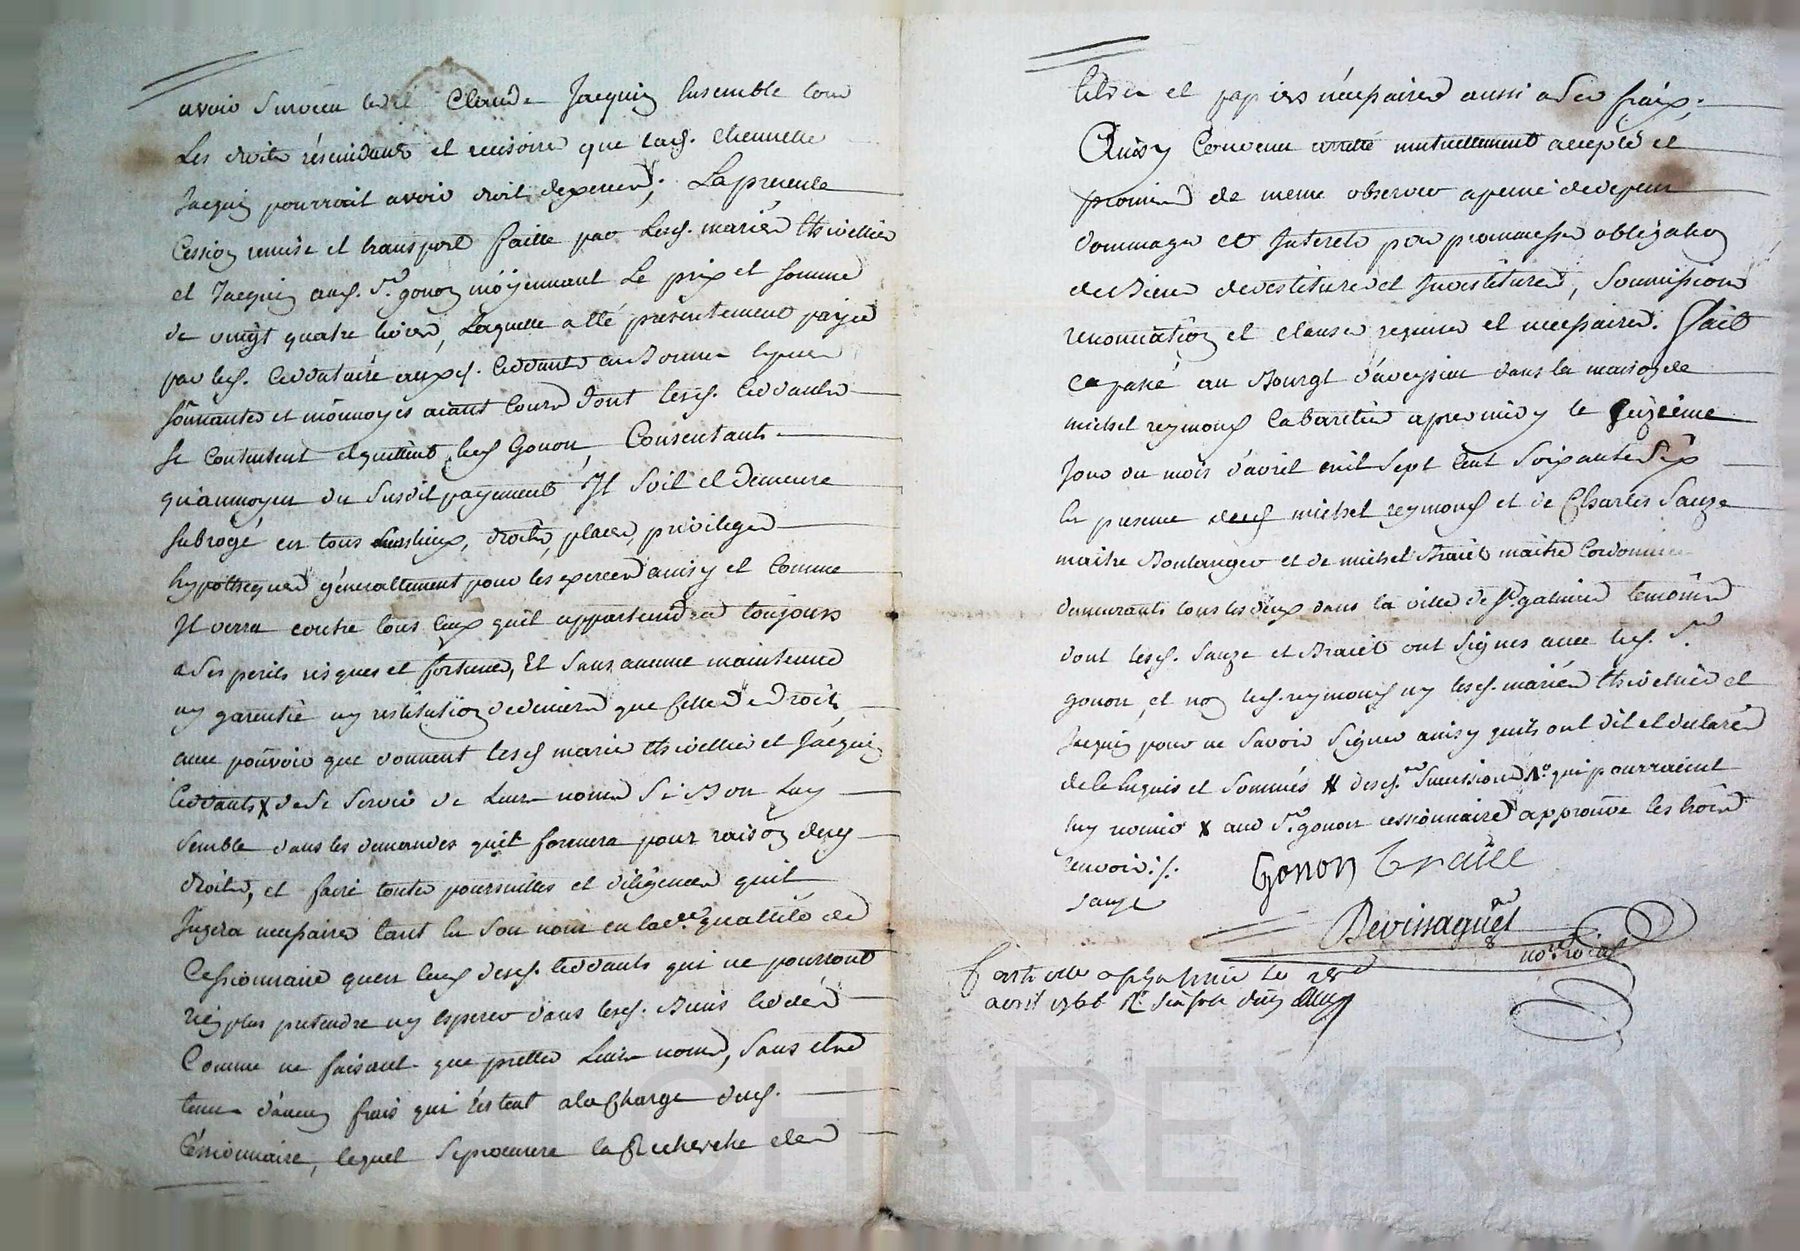 avoir survecu led.t Claude Jacquin Ensemble tous
Les droits réscindants et recisoire que lad. Etiennette
Jacquin pourroit avoir droit dexercer; La presente
Cession remise et transport faitte par Lesd. mariés thivellier
et Jacquin aud. Sr. gonon môyennant Le prix et somme
de vingt quatre livres, Laquelle a été présentement payée
par led. Ceddataire auxd. Ceddants en Bonnes Espèces
sônnantes et mônnoyes aiant Cours Dont lesd. Ceddants
se Contentent et quittent led Gonon, Consentants
qu'aumoyen du Susdit payement Il Soit et Demeure
subrogé en tous leurs lieux, droits, places, privileges
hypotheques géneralement pour les exercer ainsy et Comme
Il verra contre tous Ceux qu'il appartiendra toujours
a Ses perils risques et fortunes, Et Sans aucune maintenue
ny garentie ny restitution de deniers que Celle de Droit,
avec pouvoir que donnent lesd mariés thivellier et Jacquin
Ceddants X de Se Servir de Leurs noms Si Bon Luy
Semble dans les demandes qu'il formera pour raison desd
droits, et faire toutes poursuittes et diligences qu'il
Jugera necessaires tant En Son nom en lad.e quallité de
Cessionnaire qu'en Ceux desd. Ceddants qui ne pourront
rien plus pretendre ny Esperer dans lesd. Biens Ceddés
Comme ne faisant que pretter Leurs noms, Sans être
tenus d'aucuns frais qui restent a la Charge dud.
Céssionnaire, lequel Se procurera la Recherche des
titres et papiers nécessaires aussi a Ses fraix.
Ainsy Convenu arretté mutuellement accepté et
promis de meme observer a peine de depens
dommages et Interets par promesses obligation
de Biens devestitures et Investitures, Soumissions
renonciation et clauses requises et necessaires. Fait
Et passé au Bourgt d'aveyzieu dans la maison de
michel reymond Cabaretier apres midy le seizieme
Jour du mois d'avril mil Sept Cent Soixante Six
En presence dud michel reymond et de Charles Sauze
maitre Boulanger et de michel Braiët maitre Cordonnier
demeurants tous les deux dans la ville de St. galmier temoins
dont lesd. Sauze et Braiët ont Signés avec led. Sr.
gonon, et non led. reymond ny lesd. mariés thivellier et
Jacquin pour ne Savoir Signer ainsy quils ont dit et declarés
de ce Enquis et Sommés # desd. Successions No. qui pourraient
luy nomir X aud Sr. gonon cessionnaire approuve les trois
renvois :/.
Sauze
Gonon Braiët
Devissaguet
nore. roial
Controlle a St galmier le 28
avril 1766 R.